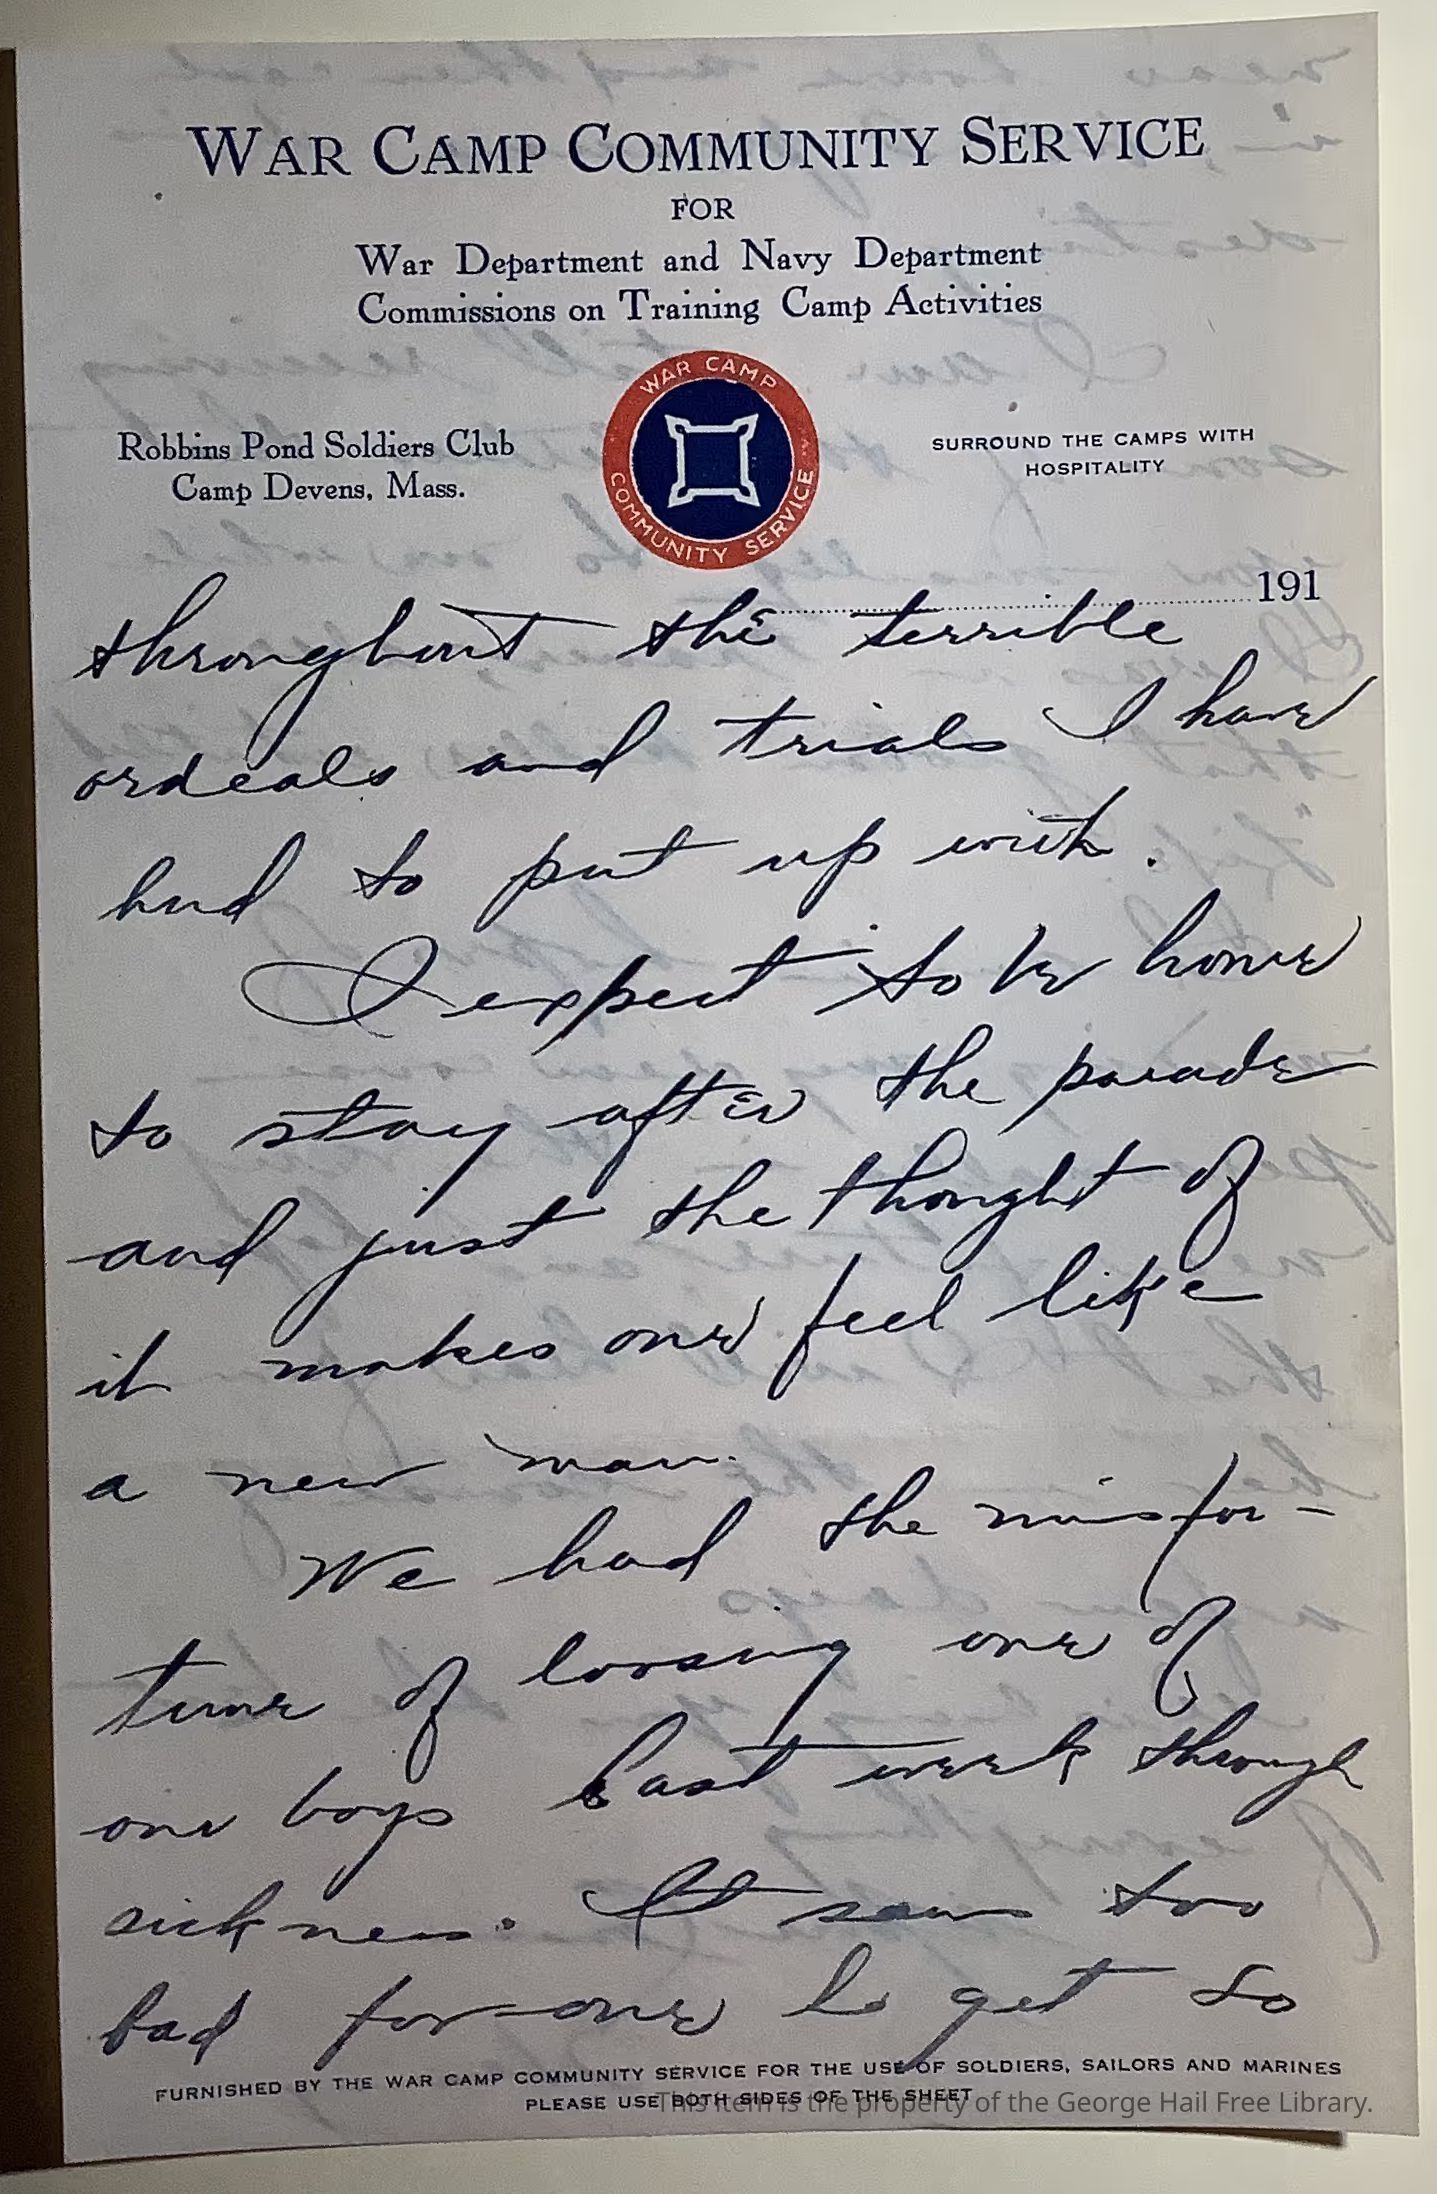 WAR CAMP COMMUNITY SERVICE
FOR
War Department and Navy Department
Commissions on Training Camp Activities
WAR CAMP
COMMUNITY SERVICE
Robbins Pond Soldiers Club
Camp Devens, Mass.
SURROUND THE CAMPS WITH
HOSPITALITY
191
throughout the terrible
ordeals and trials I have
had to put up with.
I expect to be home
to stay after the parade
and just the thought of
it makes one feel like
a new man.
We had the misfor-
tune of loosing one of
our boys last week through
sickness. It seems too
bad for one to get so
FURNISHED BY THE WAR CAMP COMMUNITY SERVICE FOR THE USE OF SOLDIERS, SAILORS AND MARINES
PLEASE USE BOTH SIDES OF THE SHEET
This item is the property of the George Hail Free Library.